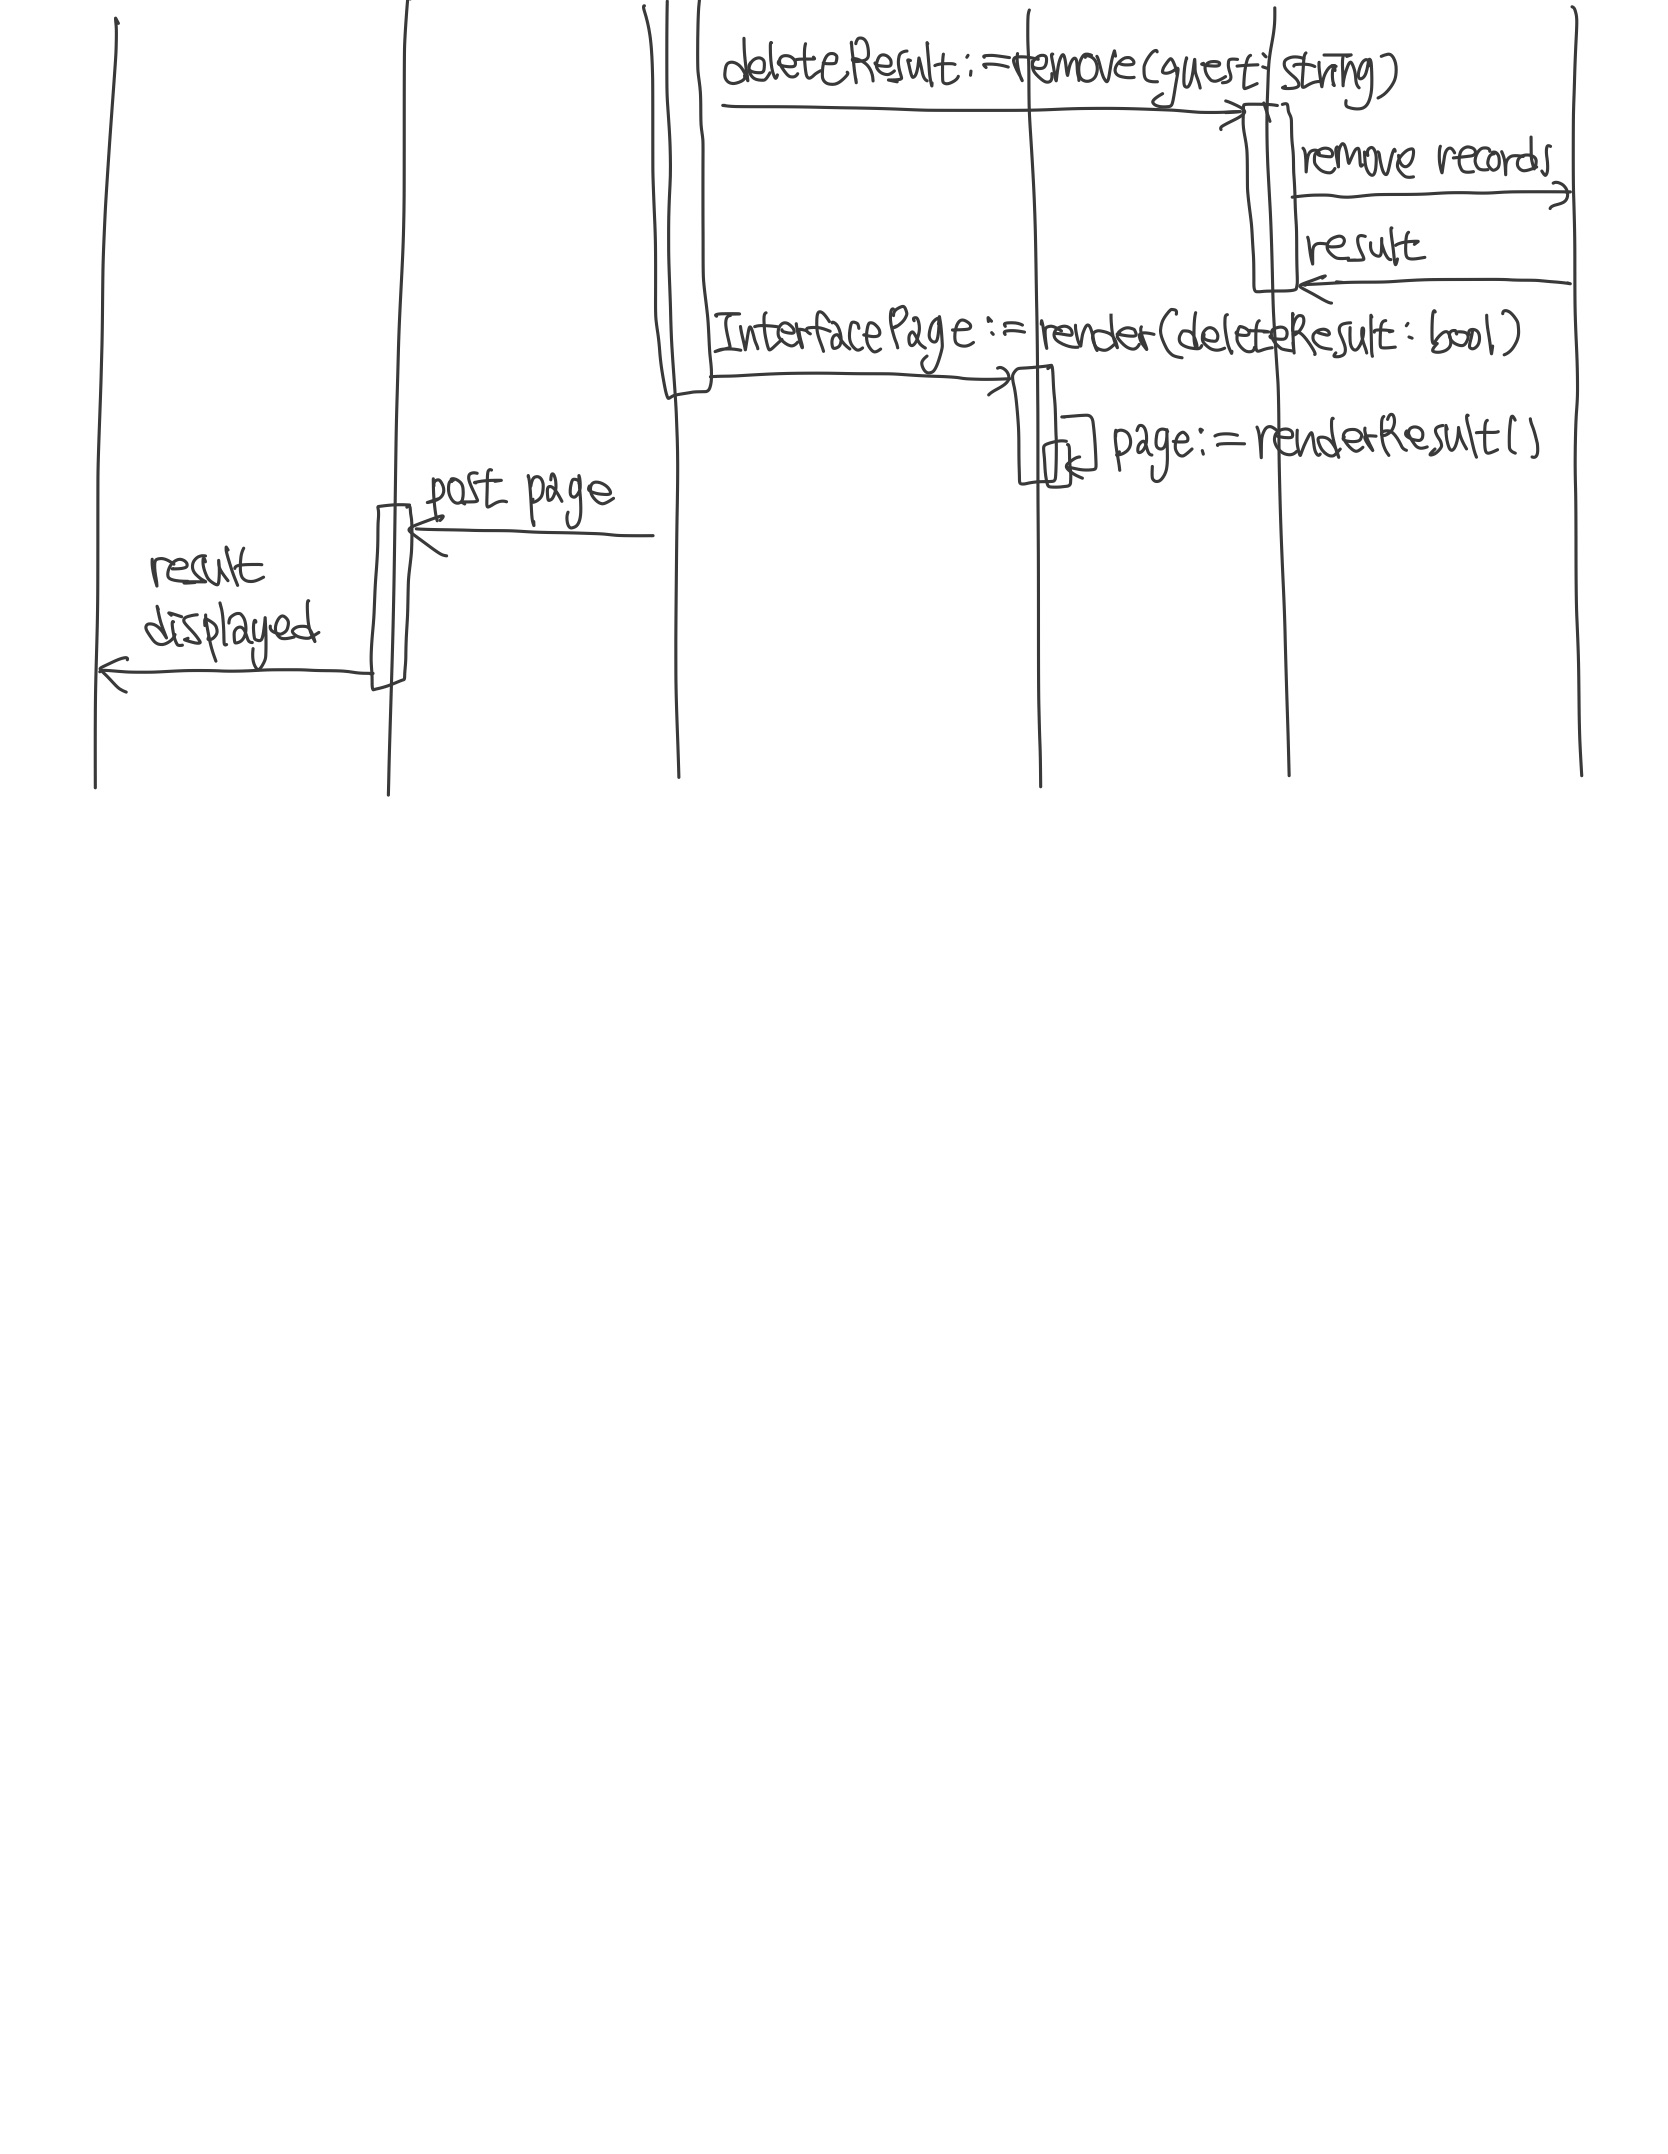 deleteResult:=remove(guest:string)
remove records
result
InterfacePage:=render(deleteResult:bool)
page:=renderResult()
post page
result
displayed